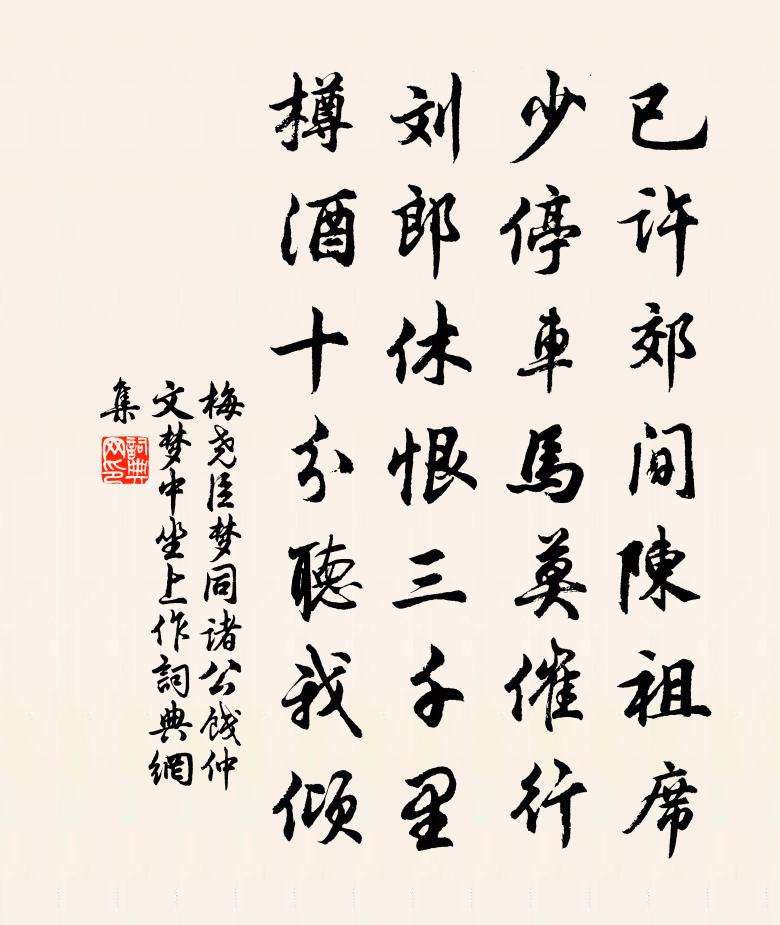 已许郊间陳祖席
少停車馬莫催行
刘郎休恨三千里
樽酒十分聽我倾
梅尧臣梦同诸公餞仲
文梦中坐上作詞典網
集
詞典
网印